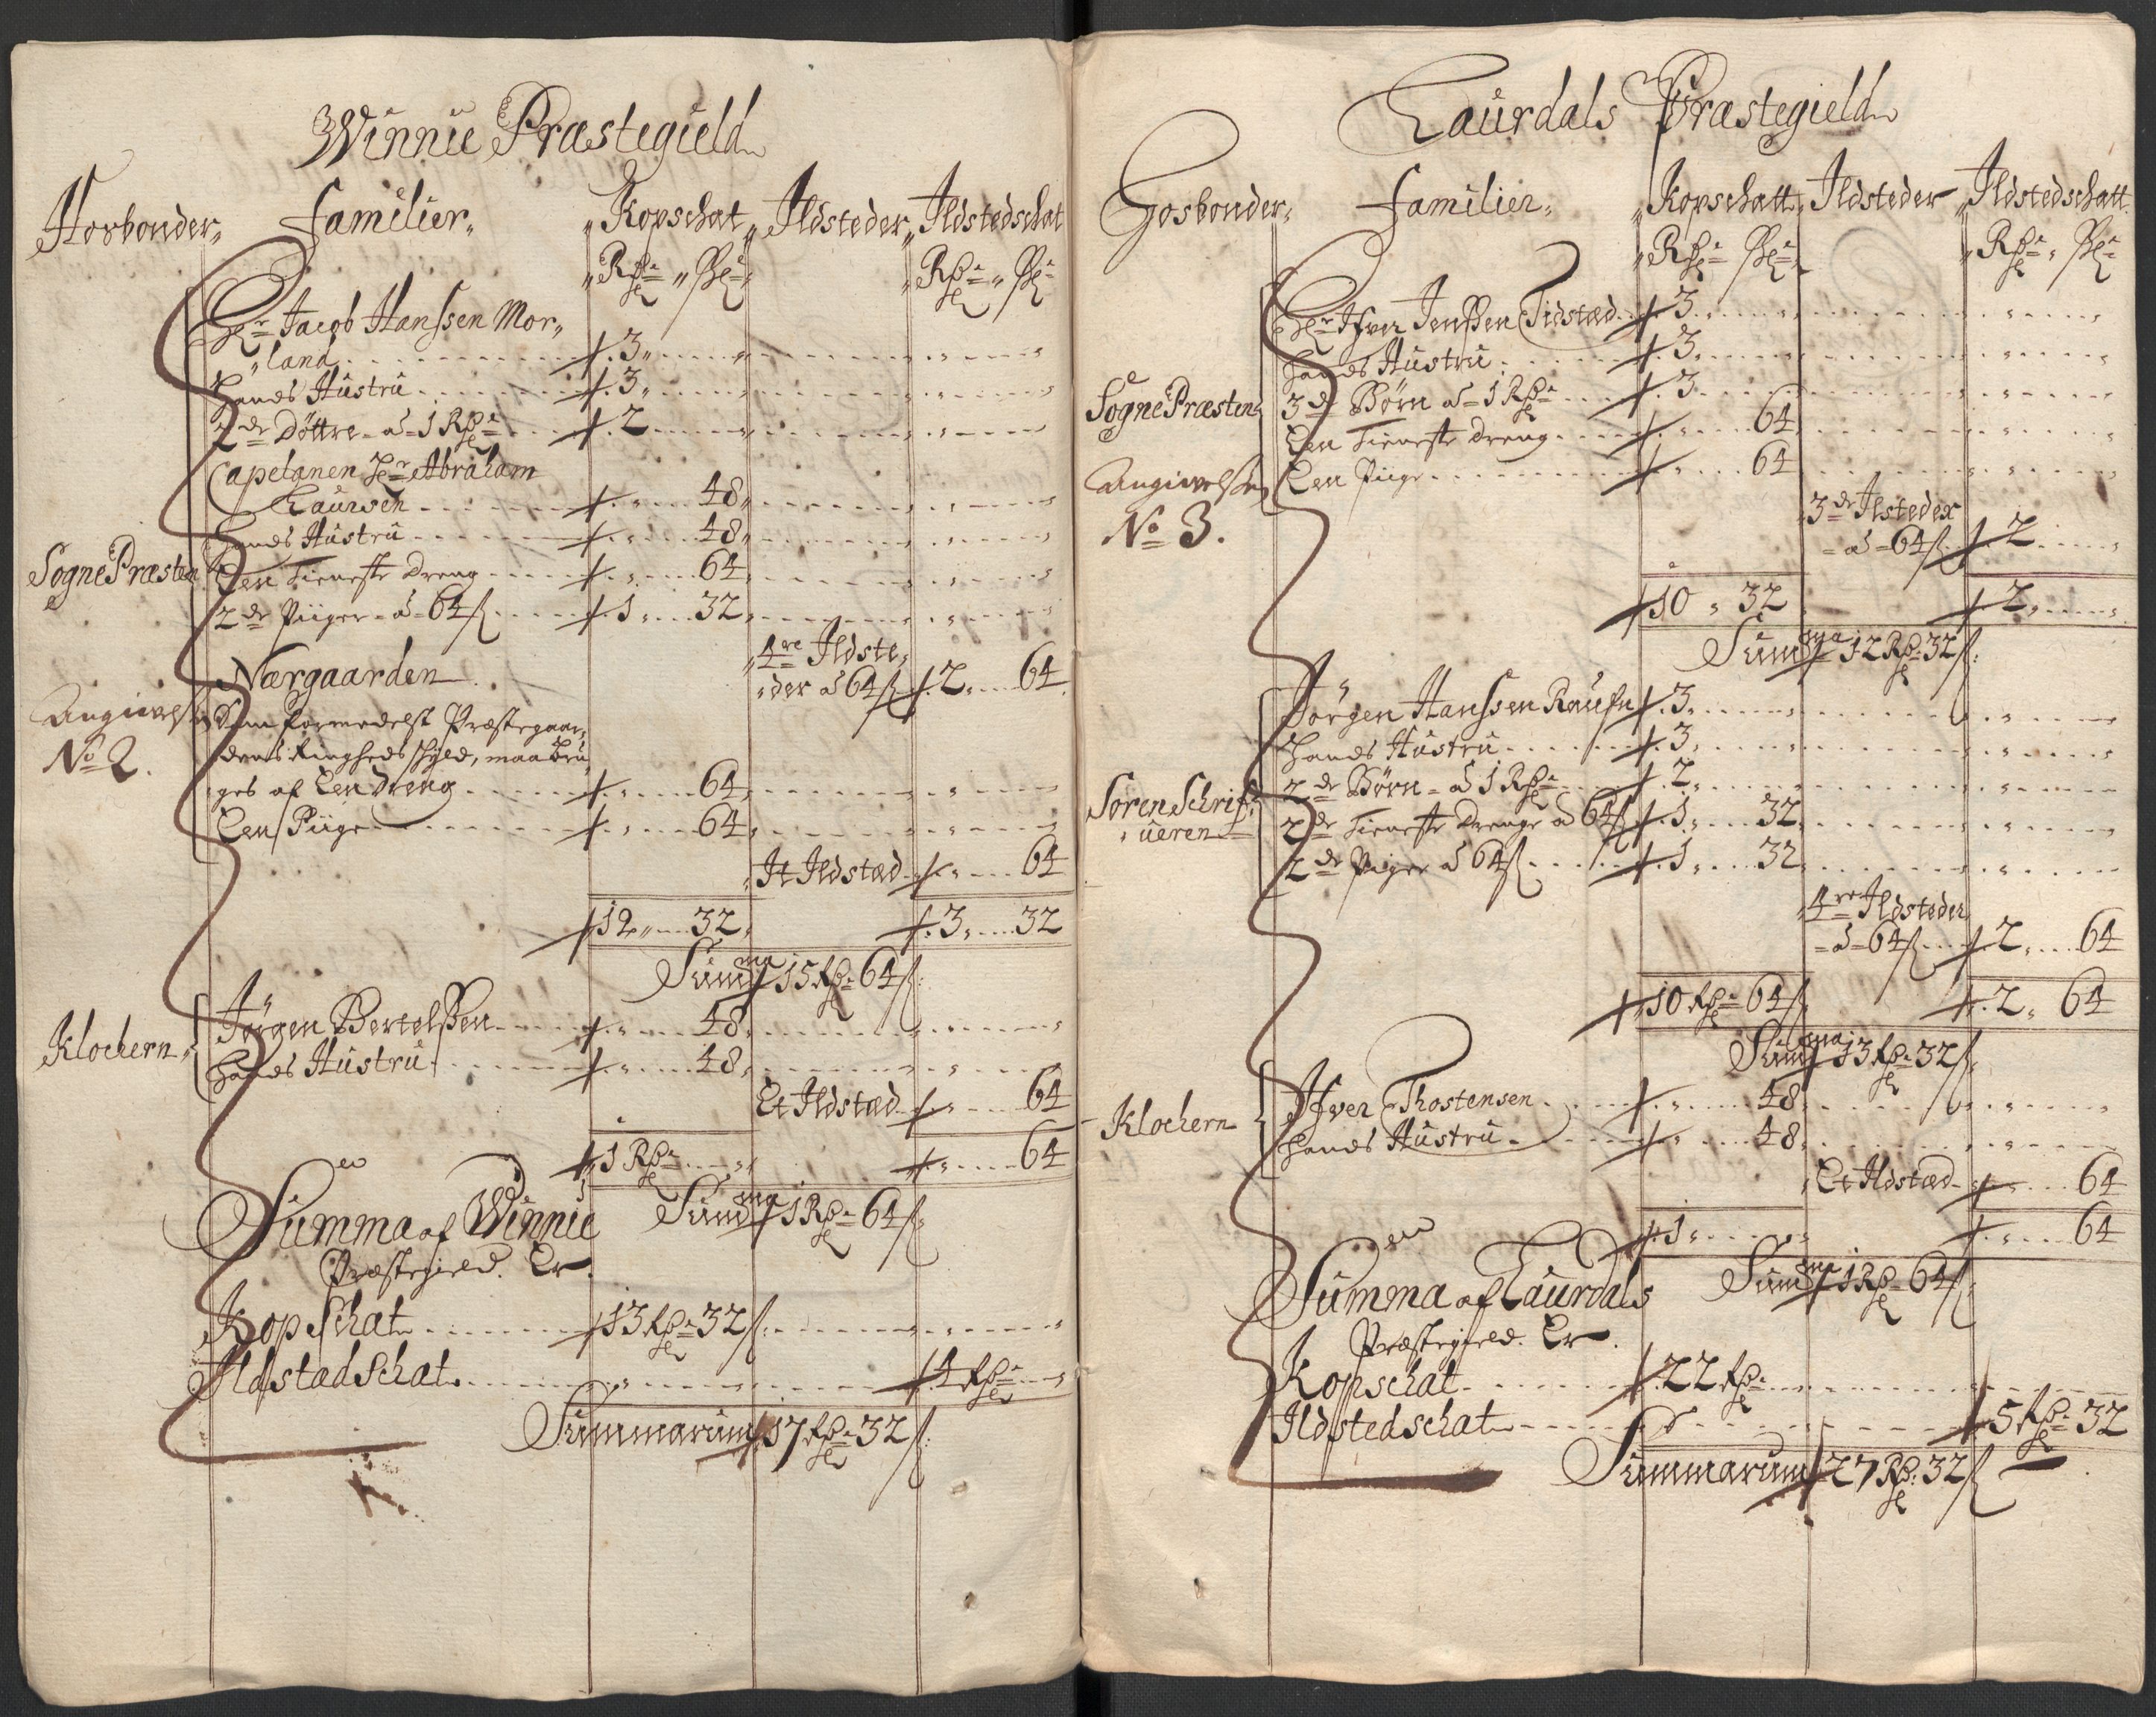 Winnie Præstegield
Hosbonder, Familier, Kopschat, Ildsteder, Ildstedschat
Rdr ß Rdr ß
Hr Jacob Hanssen Mor,
land 3
Hands Hustru 3
2de Döttre â 1 Rdr 2
Capelanen Hr Abraham
Laursen 48
Hands Hustru 48
Sogne Præsten Een tieneste Dreng 64
2de Piiger â 64 ß 1 32
4re Ildste,
der â 64 ß 2 64
Nærgaarden
Angivelsen Som formedelst Præstegaar,
No 2. dens Ringheds skyld, maa bru
ges af Een dreng 64
Een Piige 64
It Ildstæd 64
12 32 3 32
Summa 15 Rdr 64 ß
Klochern Jörgen Bertelssen 48
Hands Hustru 48
Et Ildstæd 64
1 Rdr 64
Summa 1 Rdr 64 ß
Summa af Winnie
Præstegield. Er
Kop Schat 13 Rdr 32 ß
IldstædSchat 4 Rdr
Summarum 17 Rdr 32 ß
Laurdals Præstegield
Hosbonder, Familier, Kopschatt, Ildsteder Ildstedschatt
Rdr ß Rdr ß
Hr Ifver Jenssen Tidstæd 3
Hands Hustru 3
Sogne Præsten 3de Börn â 1 Rdr 3
Een tieneste dreng 64
Angivelsen Een Piige 64
No 3. 3de Ilsteder
â 64 ß 2
10 32 2
Summa 12 Rdr 32 ß
Jörgen Hanssen Raufn 3
Hands Hustru 3
Soren Schrif, 2de Börn â 1 Rdr 2
ueren 2de tieneste Drenge â 64 ß 1 32
2de Piiger â 64 ß 1 32
4re Ildsteder
â 64 ß 2 64
10 Rdr 64 ß 2 64
Summa 13 Rdr 32 ß
Klochern Ifver Thostensen 48
Hands Hustru 48
Et Ildstæd 64
1 64
Summa 1 Rdr 64 ß
Summa af Laurdals
Præstegield. Er
Kopschat 22 Rdr
Ildstedschat 5 Rdr 32
Summarum 27 Rdr 32 ß